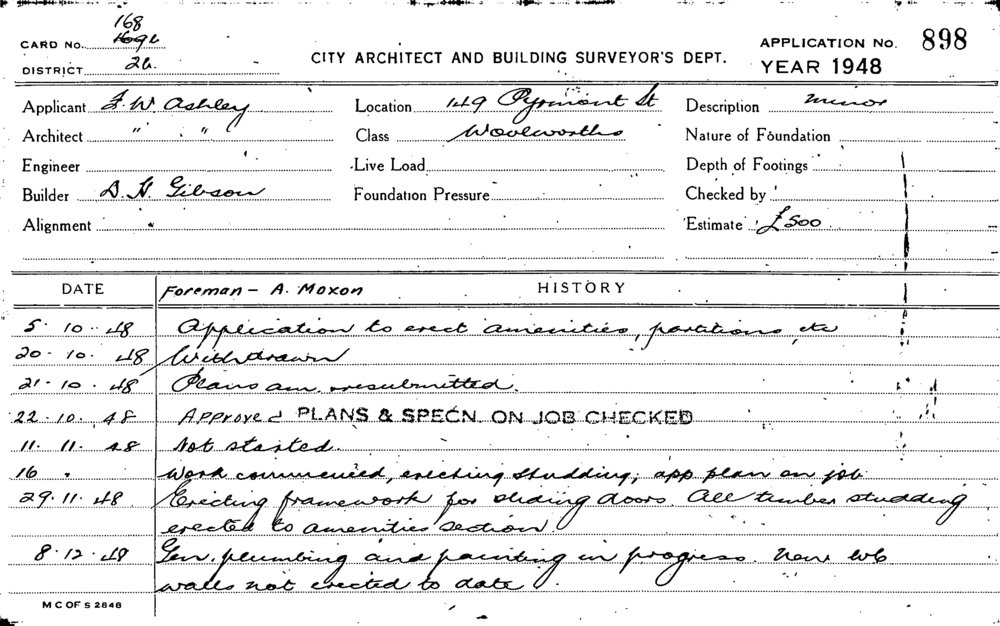 168
CARD No.
DISTRICT 26.
CITY ARCHITECT AND BUILDING SURVEYOR'S DEPT.
APPLICATION No. 898
YEAR 1948
Applicant F. W Ashley Location 149 Pyrmont St Description minor
Architect " " Class Woolworths Nature of Foundation
Engineer Live Load Depth of Footings
Builder D. H. Gibson Foundation Pressure Checked by
Alignment Estimate £500
DATE Foreman - A. Moxon HISTORY
5. 10. 48 Application to erect amenities, partitions etc
20. 10. 48 Withdrawn
21. 10. 48 Plans am. resubmitted.
22. 10. 48 Approved PLANS & SPECN. ON JOB CHECKED
11. 11. 48 Not started.
16 " Work commenced, erecting studding; app plan on job
29. 11. 48 Erecting framework for sliding doors. All timber studding
erected to amenities section.
8. 12. 48 Gen. plumbing and painting in progress. New WC
walls not erected to date.
M C OF S 2848